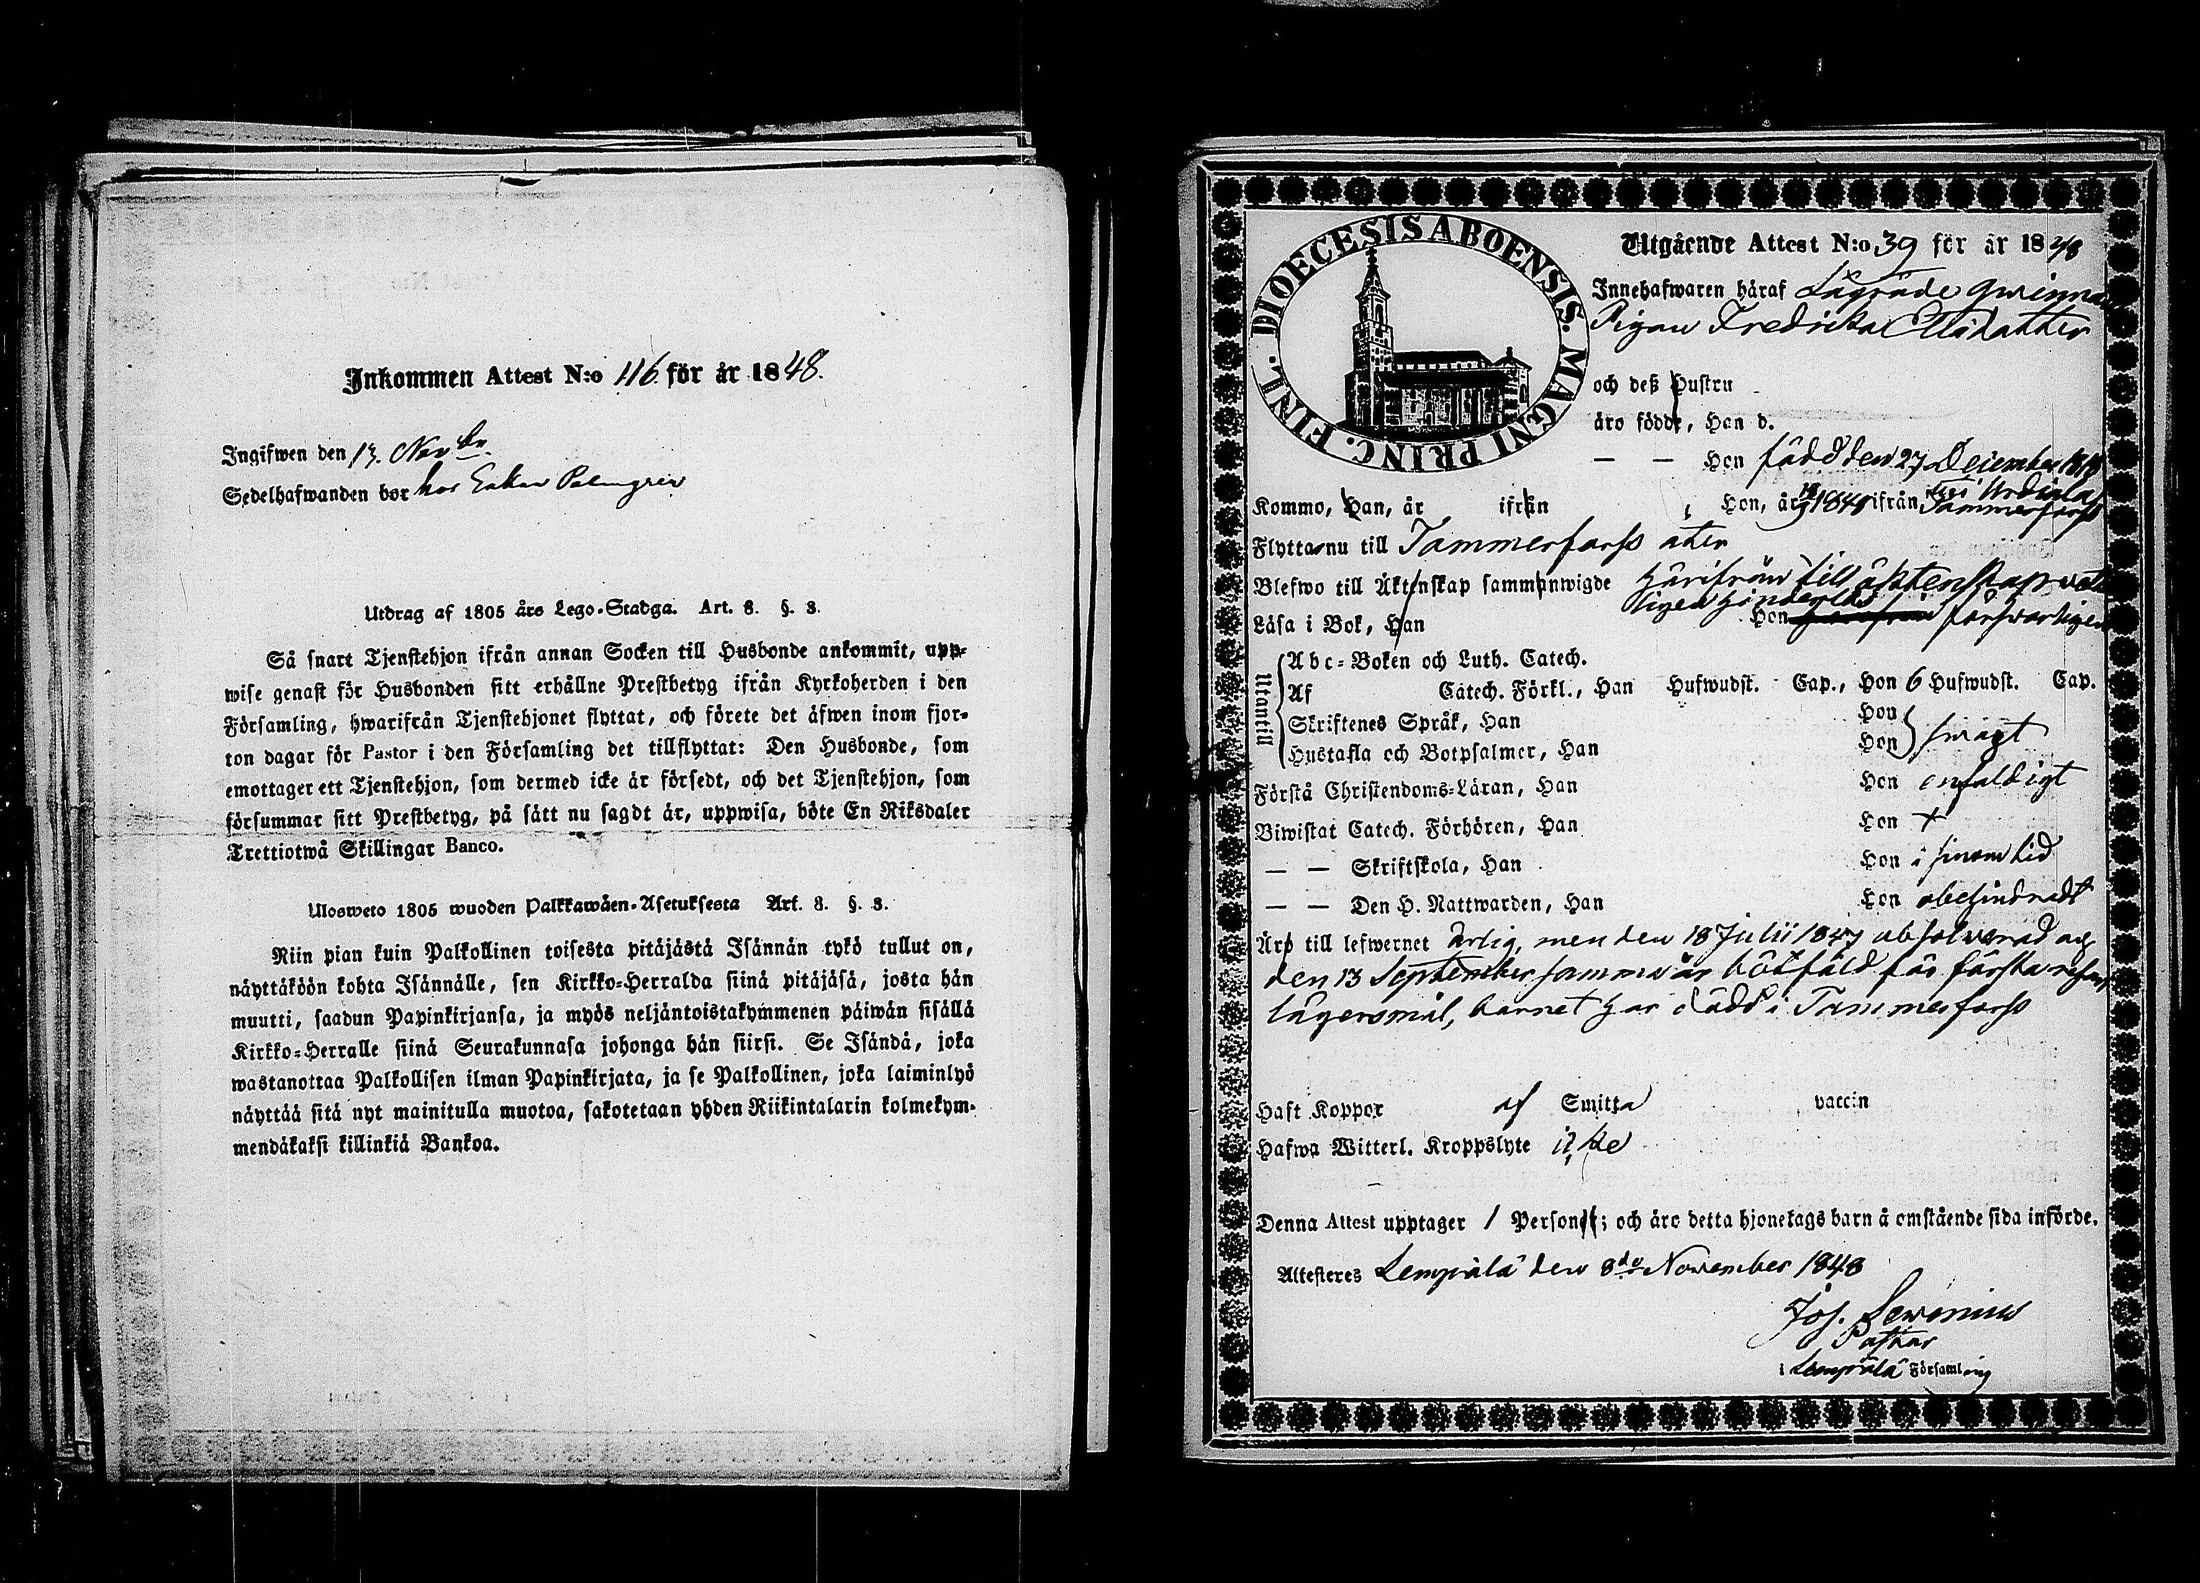 Inkommen Attest N:o 116 för år 1848.
Ingifwen den 13. Novbr.
Sedelhafwanden bor hos Enkan Palmgren
Utdrag af 1805 års Lego-Stadga. Art. 8. §. 3.
Så snart Tjenstehjon ifrån annan Socken till Husbonde ankommit, upp-
wise genast för Husbonden sitt erhållne Prestbetyg ifrån Kyrkoherden i den
Församling, hwarifrån Tjenstehjonet flyttat, och förete det äfwen inom fjor-
ton dagar för Pastor i den Församling det tillflyttat: Den Husbonde, som
emottager ett Tjenstehjon, som dermed icke är försedt, och det Tjenstehjon, som
försummar sitt Prestbetyg, på sätt nu sagdt är, uppwisa, böte En Riksdaler
Trettiotwå Skillingar Banco.
Ulosweto 1805 wuoden Palkkawäen-Asetuksesta Art. 8. §. 3.
Niin pian kuin Palkollinen toisesta pitäjästä Isännän tykö tullut on,
näyttäköön kohta Isännälle, sen Kirkko-Herralda siinä pitäjäsä, josta hän
muutti, saadun Papinkirjansa, ja myös neljäntoistakymmenen päiwän sisällä
Kirkko-Herralle siinä Seurakunnasa johonga hän siirsi. Se Isändä, joka
wastanottaa Palkollisen ilman Papinkirjata, ja se Palkollinen, joka laiminlyö
näyttää sitä nyt mainitulla muotoa, sakotetaan yhden Riikintalarin kolmekym-
mendäkaksi killinkiä Bankoa.
DIOECESIS ABOENSIS. MAGNI PRINC. FINL.
Utgående Attest N:o 39 för år 1848
Innehafwaren häraf Lägrade qwinnan
Pigan Fredrika Elisdotter
och deß Hustru
äro födde, Han d.
— — Hon född den 27 December 1818
Kommo, Han, år ifrån , Hon, år 1848 ifrån Urdiala
Tammerfors
Flytta nu till Tammerforss åter
Blefwo till Äktenskap sammanwigde Härifrån till äktenskap
Läsa i Bok, Han Hon försvarligen
Utantill
Abc-Boken och Luth. Catech.
Af Catech. Förkl., Han Hufwudst. Cap., Hon 6 Hufwudst. Cap.
Skriftenes Språk, Han Hon
Hustafla och Botpsalmer, Han Hon swagt
Förstå Christendoms-Läran, Han Hon enfaldigt
Biwistat Catech. Förhören, Han Hon +
— — Skriftskola, Han Hon i sinom tid
— — Den H. Nattwarden, Han Hon obehindradt
Äro till lefwernet ärlig, men den 18 Julii 1847 absolverad och
den 13 September samma år bötfäld för första resan
lägersmål, barnet har dödt i Tammerforss
Haft Koppor af Smitta vaccin
Hafwa Witterl. Kroppslyte icke
Denna Attest upptager 1 Person; och äro detta hjonelags barn å omstående sida införde.
Attesteres Lempälä den 8de November 1848
Jos. Serenius
Pastor
i Lempälä Församling